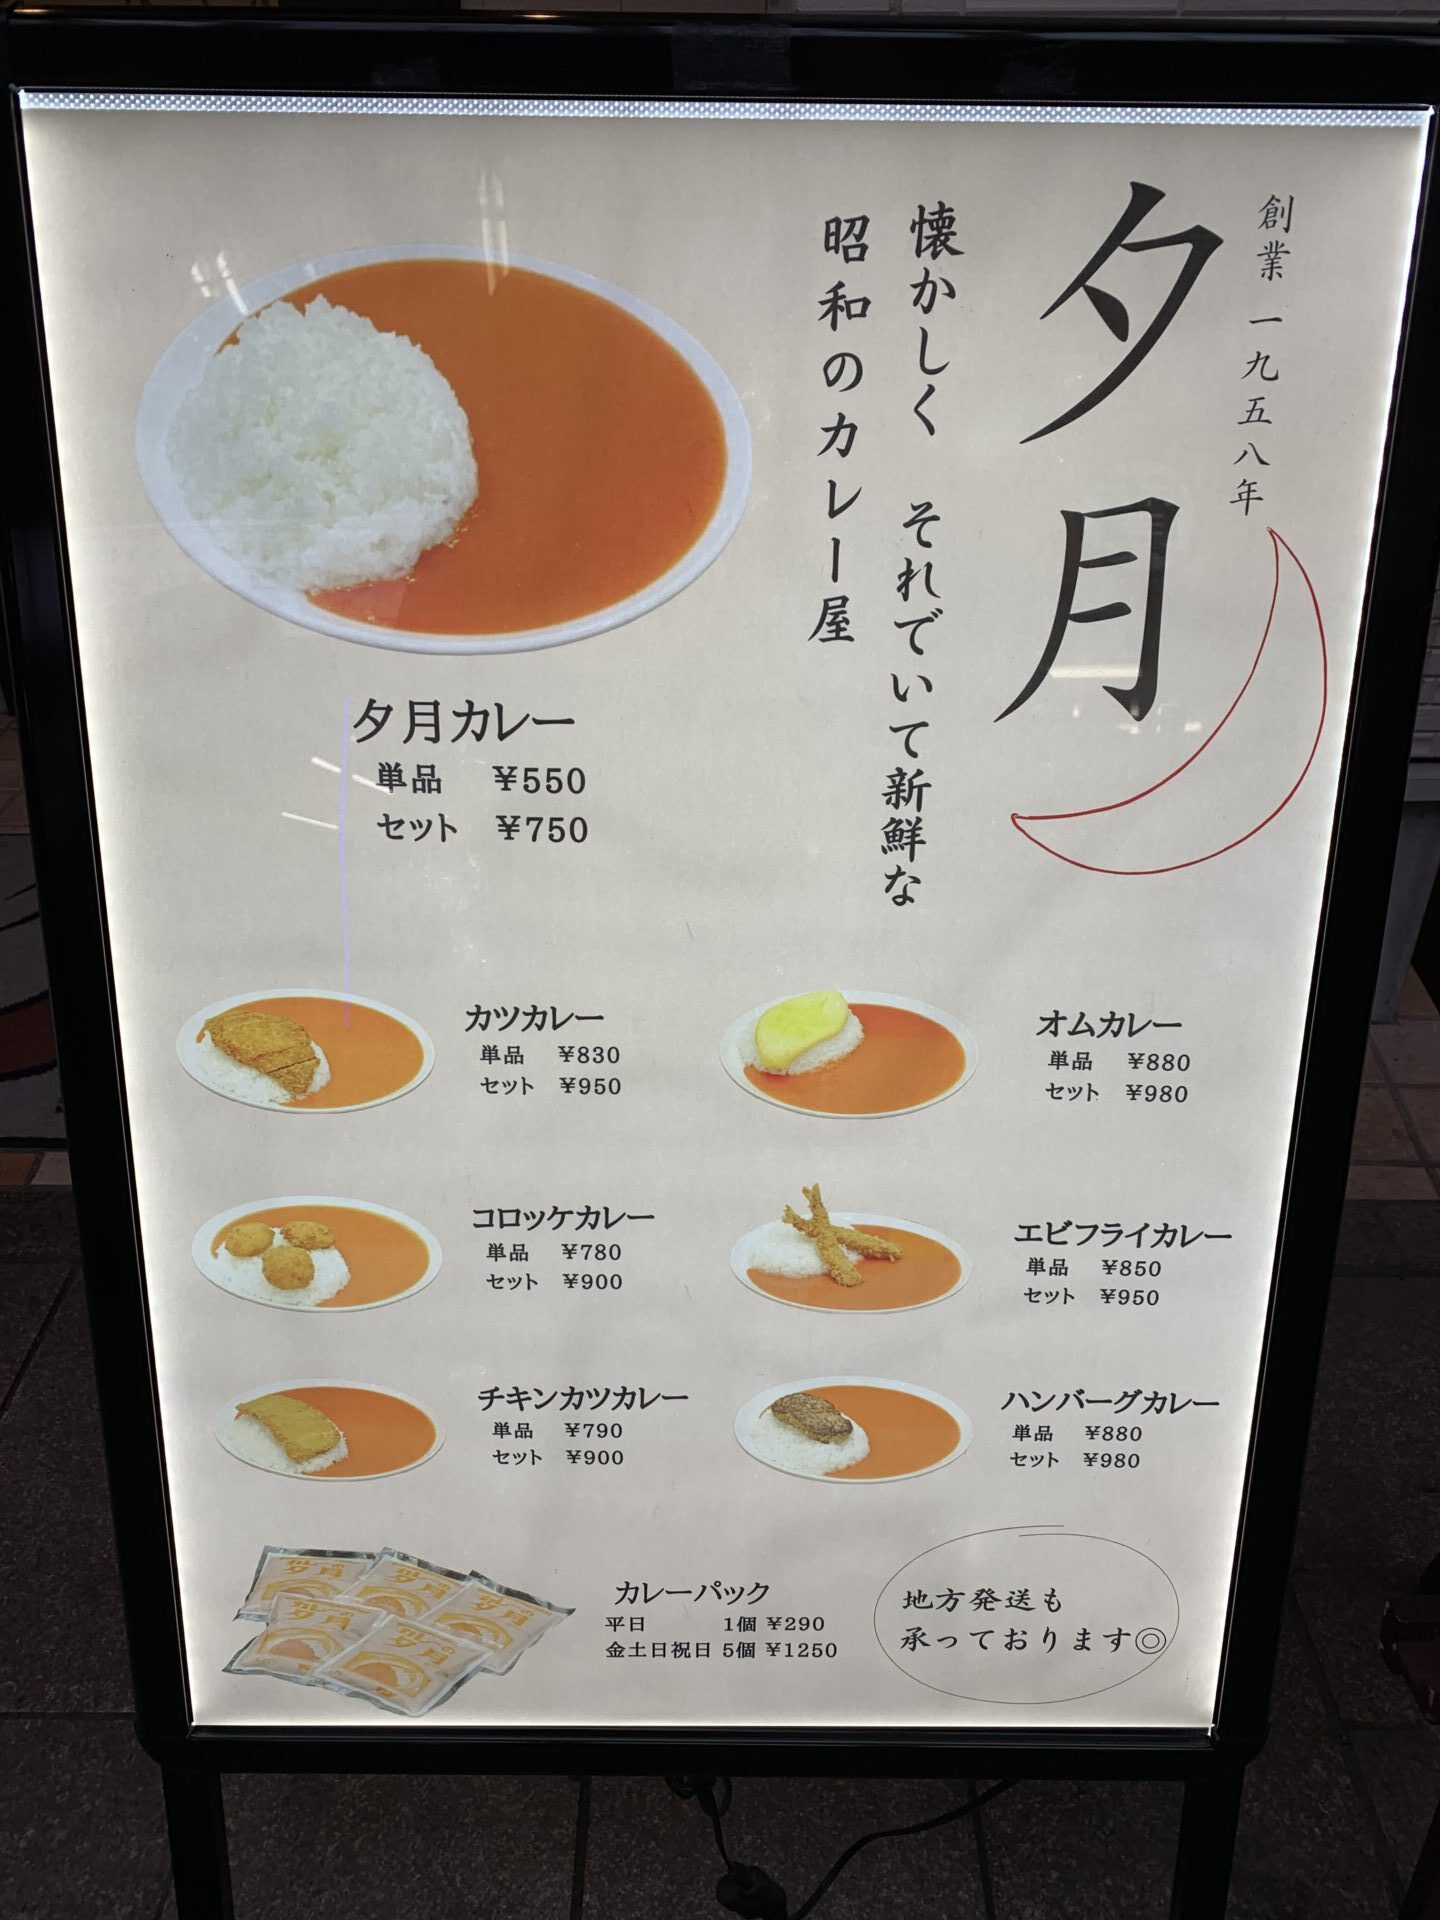 創業一九五八年
夕月
懐かしく それでいて新鮮な
昭和のカレー屋
夕月カレー
単品 ¥550
セット ¥750
カツカレー
単品 ¥830
セット ¥950
オムカレー
単品 ¥880
セット ¥980
コロッケカレー
単品 ¥780
セット ¥900
エビフライカレー
単品 ¥850
セット ¥950
チキンカツカレー
単品 ¥790
セット ¥900
ハンバーグカレー
単品 ¥880
セット ¥980
カレーの
夕月
カレーの
夕月
カレーの
夕月
カレーの
夕月
カレーの
夕月
カレーパック
平日 1個 ¥290
金土日祝日 5個 ¥1250
地方発送も
承っております◎